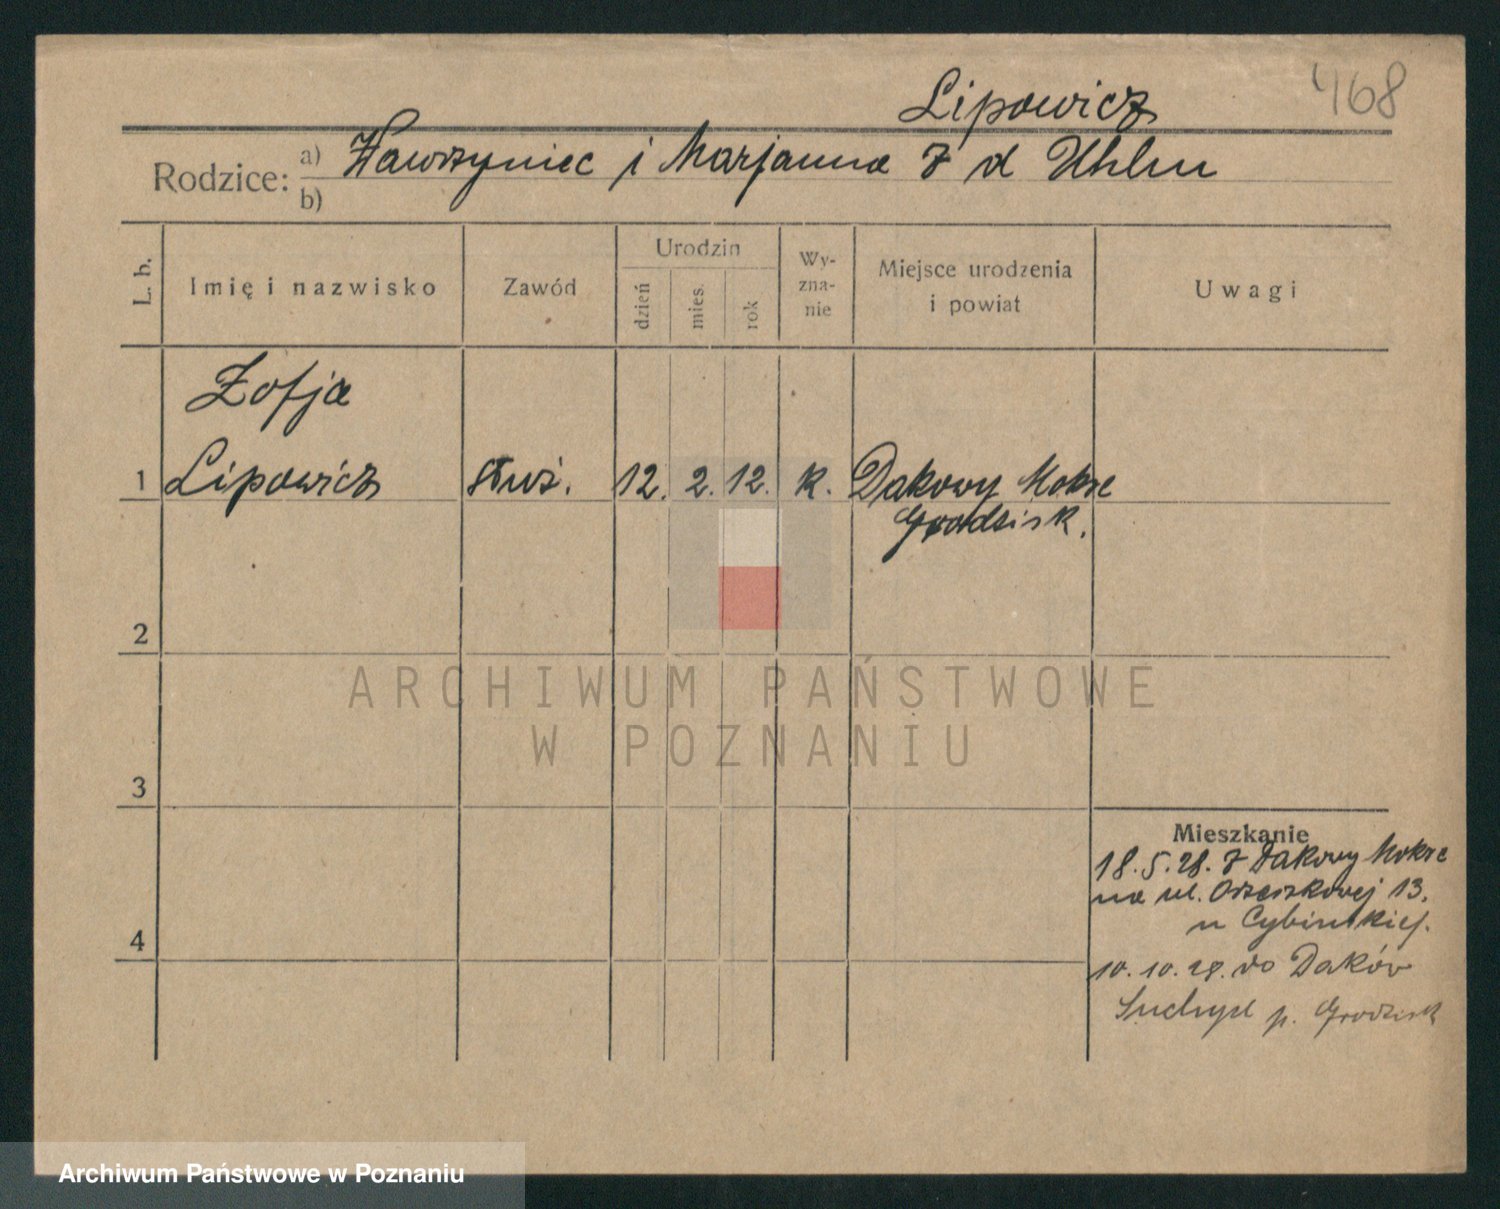 468
Lipowicz
Rodzice: a) Wawrzyniec i Marjanna z d Uhlm
b)
L. b.
Imię i nazwisko
Zawód
Urodzin
dzień
mies.
rok
Wy-
zna-
nie
Miejsce urodzenia
i powiat
Uwagi
Zofja
1 Lipowicz służ. 12. 2. 12. k. Dakowy Mokre
Grodzisk.
2
3
4
Mieszkanie
18.5.28. z Dakowy Mokre
na ul. Orzeszkowej 13.
u Cybińskiej.
10.10.28. do Daków
Suchych p. Grodzisk
ARCHIWUM PAŃSTWOWE
W POZNANIU
Archiwum Państwowe w Poznaniu